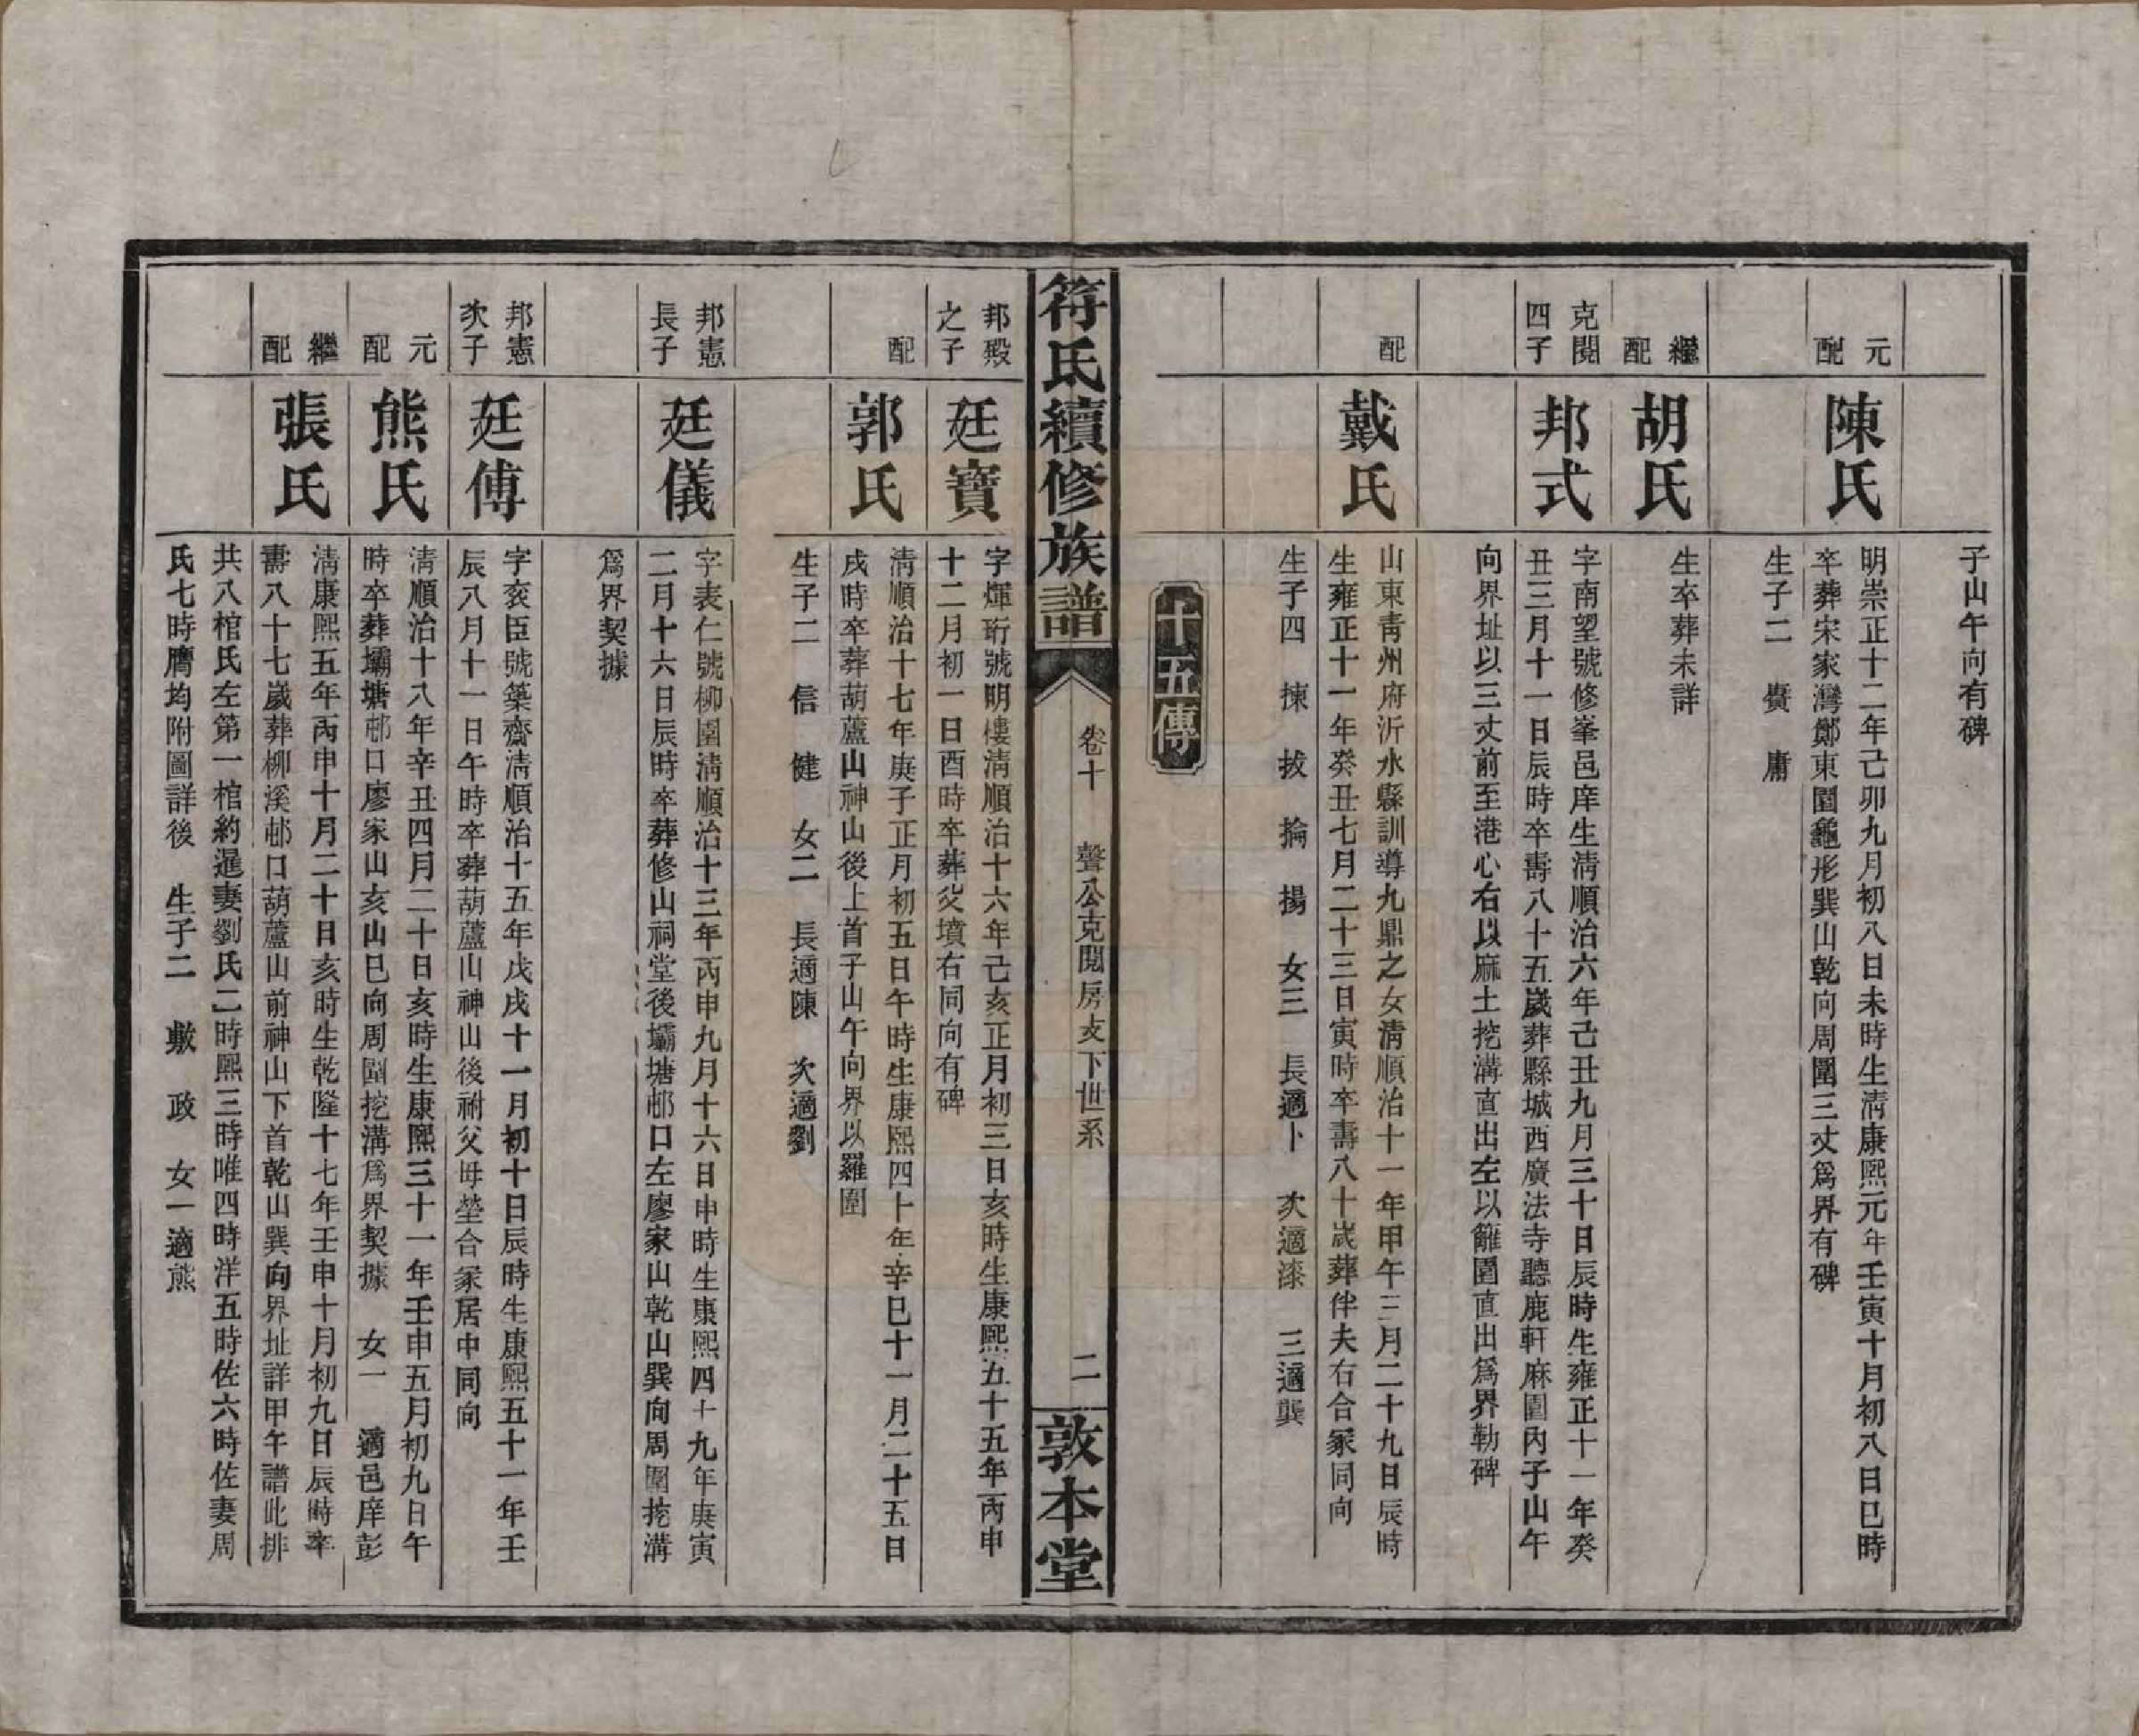 子山午向有碑
元配
陳氏
明崇正十二年己卯九月初八日未時生清康熙元年壬寅十月初八日巳時
卒葬宋家灣鄭東園龜形巽山乾向周圍三丈爲界有碑
生子二 賡 庸
繼配
胡氏
生卒葬未詳
克閱四子
邦式
字南望號修峯邑庠生清順治六年己丑九月三十日辰時生雍正十一年癸
丑三月十一日辰時卒壽八十五歲葬縣城西廣法寺聽鹿軒麻園內子山午
向界址以三丈前至港心右以麻土挖溝直出左以籬園直出爲界勒碑
配
戴氏
山東青州府沂水縣訓導九鼎之女清順治十一年甲午三月二十九日辰時
生雍正十一年癸丑七月二十三日寅時卒壽八十歲葬伴夫右合冢同向
生子四 揀 拔 掄 揚 女三 長適卜 次適漆 三適龔
十五傳
符氏續修族譜
卷十 聲公克閱房支下世系
二
敦本堂
邦殿之子
廷寶
字煇珩號明樓清順治十六年己亥正月初三日亥時生康熙五十五年丙申
十二月初一日酉時卒葬父墳右同向有碑
配
郭氏
清順治十七年庚子正月初五日午時生康熙四十年辛巳十一月二十五日
戌時卒葬葫蘆山神山後上首子山午向界以羅圍
生子二 信 健 女二 長適陳 次適劉
邦憲長子
廷儀
字表仁號柳園清順治十三年丙申九月十六日申時生康熙四十九年庚寅
二月十六日辰時卒葬修山祠堂後壩塘邨口左廖家山乾山巽向周圍挖溝
爲界契據
邦憲次子
廷傅
字袞臣號築齋清順治十五年戊戌十一月初十日辰時生康熙五十一年壬
辰八月十一日午時卒葬葫蘆山神山後祔父毋塋合冢居中同向
元配
熊氏
清順治十八年辛丑四月二十日亥時生康熙三十一年壬申五月初九日午
時卒葬壩塘邨口廖家山亥山巳向周圍挖溝爲界契據 女一 適邑庠彭
繼配
張氏
清康熙五年丙申十月二十日亥時生乾隆十七年壬申十月初九日辰時卒
壽八十七歲葬柳溪邨口葫蘆山前神山下首乾山巽向界址詳甲午譜此排
共八棺氏左第一棺約暹妻劉氏二時熙三時唯四時洋五時佐六時佐妻周
氏七時膺均附圖詳後 生子二 敷 政 女一適熊